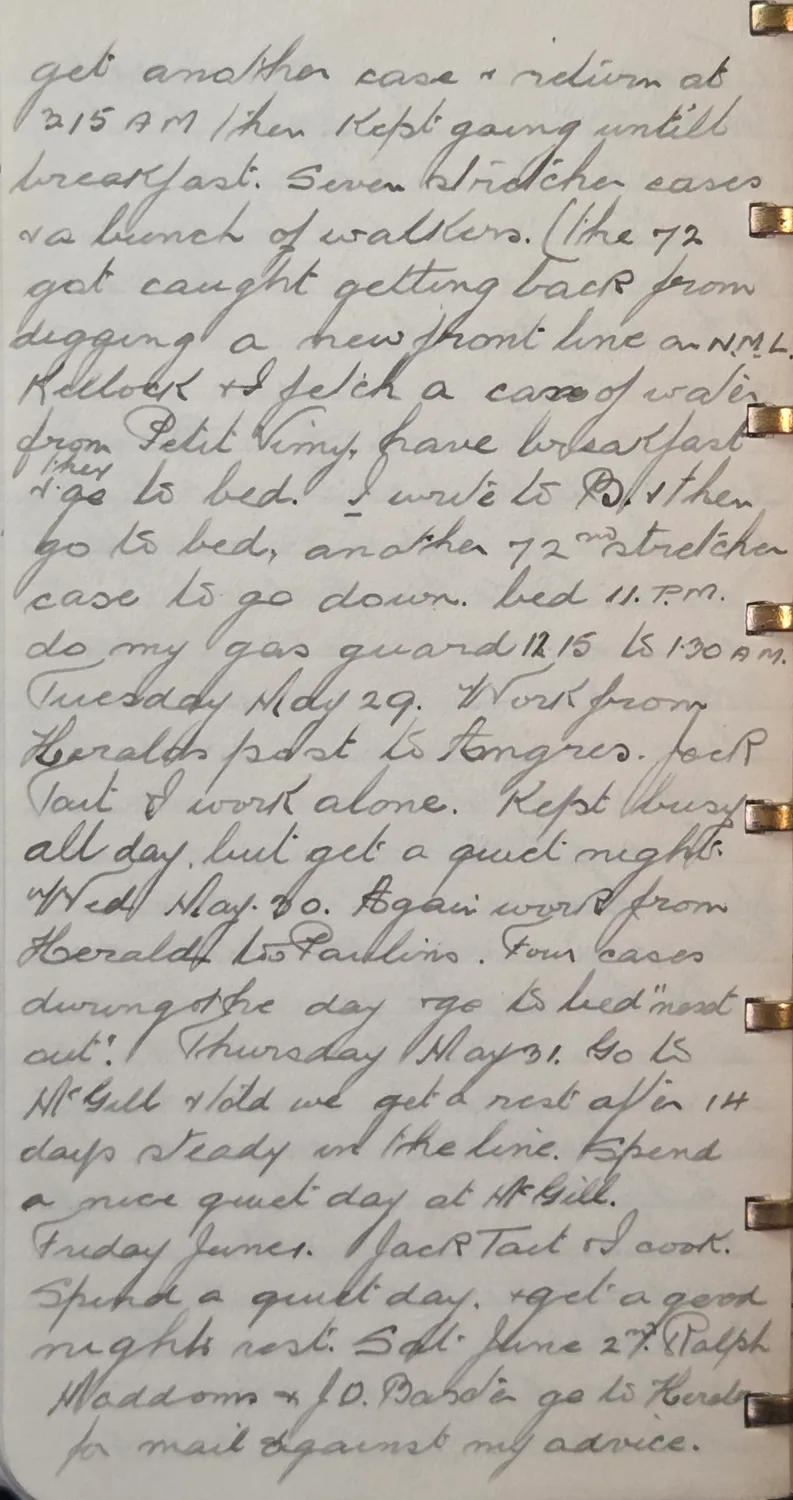 get another case & return at
3 15 AM then Kept going untill
breakfast. Seven stretcher cases
& a bunch of walkers. (The 72
got caught getting back from
digging a new front line on N.M.L.
Kellock & I fetch a can of water
from Petit Vimy, have breakfast
& then go to bed. I write to B. & then
go to bed, another 72nd stretcher
case to go down. bed 11. P.M.
do my gas guard 12 15 to 1.30 AM.
Tuesday May 29. Work from
Heralds post to Angres. Jack
Tait & I work alone. Kept busy
all day, but get a quiet night.
Wed May. 30. Again work from
Herald to Paulins. Four cases
during the day & go to bed "nearly
out". Thursday May 31. Go to
McGill & told we get a rest after 14
days steady in the line. Spend
a nice quiet day at McGill.
Friday June 1. Jack Tait & I cook.
Spend a quiet day, & get a good
nights rest. Sat. June 2nd. Ralph
Maddoms & J.D. go to
for mail against my advice.